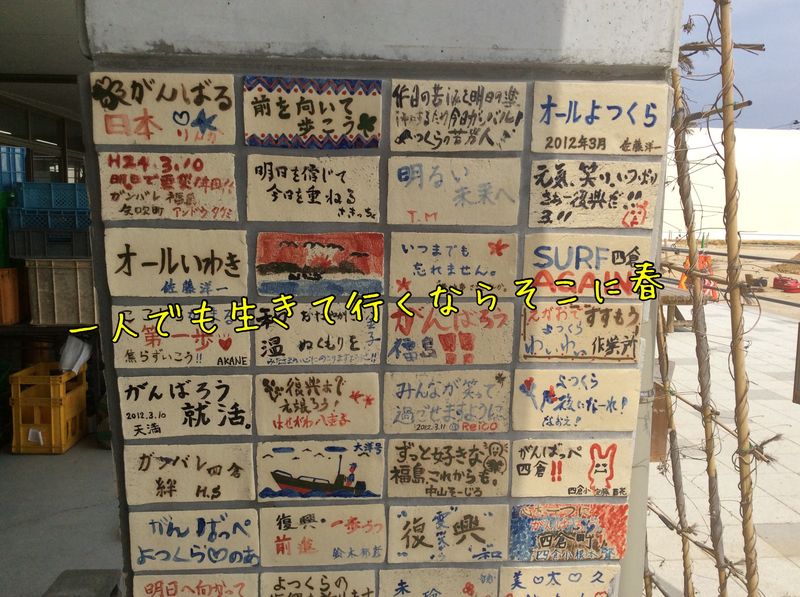 がんばる
日本
前を向いて
歩こう
オールよつくら
2012年3月 佐藤洋一
H24.3.10
ガンバレ福島
矢吹町 アンドウタクミ
明日を信じて
今日を重ねる
明るい
未来へ
T.M
元気、笑り、いっぱい
さぁー復興だ!!
3.11
オールいわき
佐藤洋一
いつまでも
忘れません。
SURF四倉
AGAIN
一人でも生きて行くならそこに春
第一歩
焦らずいこう!! AKANE
温 ぬくもりを
がんばろう
福島!!
えがおですすもう
よつくら
わいわい作業所
がんばろう
2012.3.10 就活。
天満
復興まで
頑張ろう!
はせがわ八重子
みんなが笑って
過ごせますように。
2012.3.11 Reico
よつくら
ガンバレ四倉
絆 H.S
大洋号
ずっと好きな
福島、これからも。
中山そーじろ
がんばっぺ
四倉!!
がんばっぺ
よつくら♡のあ
復興一歩ずつ
前進
"復興"
心は一つに
四倉町
明日へ向かって
よつくらの
美・太・久